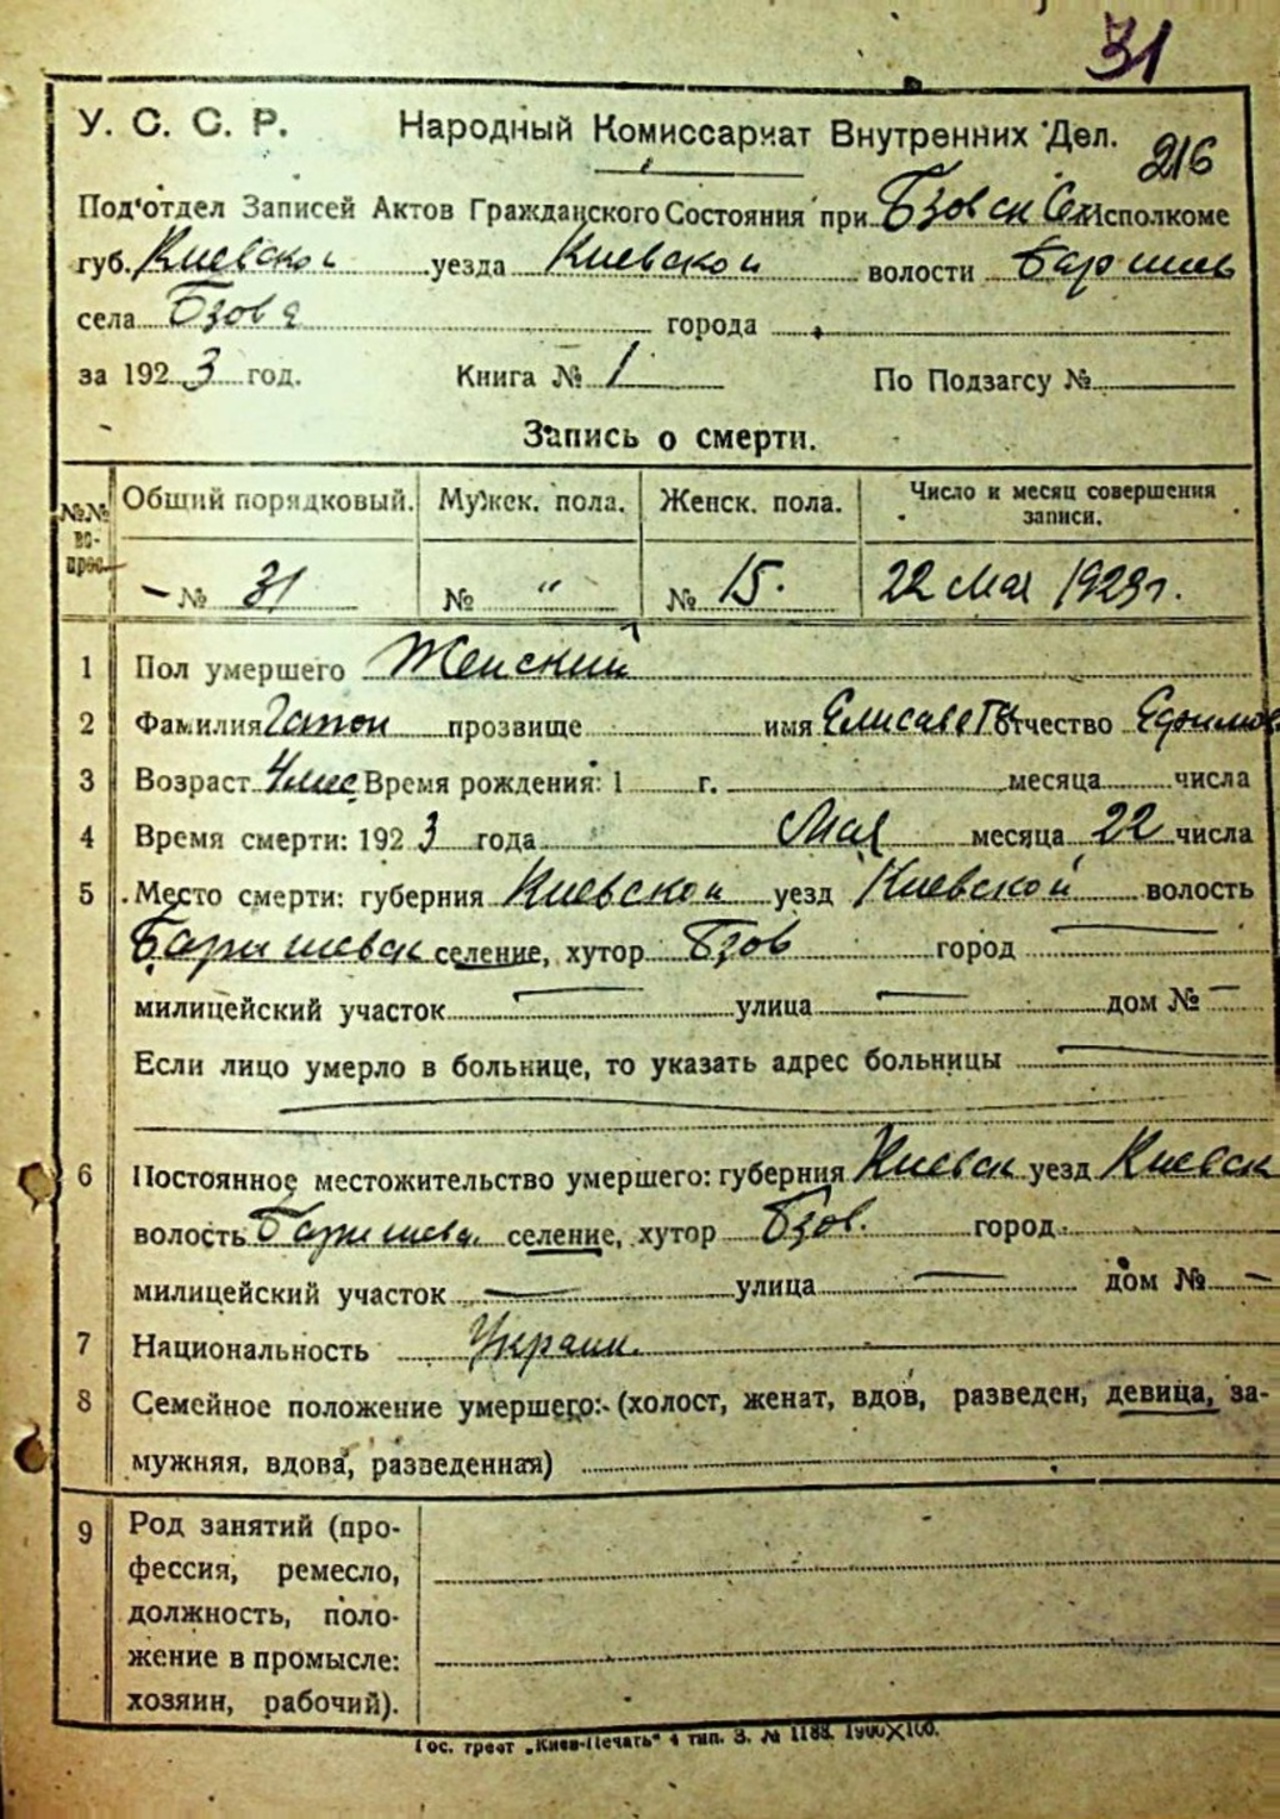 31
У. С. С. Р. Народный Комиссариат Внутренних Дел.
216
Под'отдел Записей Актов Гражданского Состояния при Бзовск Сел Исполкоме
губ. Киевской уезда Киевской волости Баришев
села Бзова города
за 1923 год. Книга № 1 По Подзагсу №
Запись о смерти.
№№ во-прос. Общий порядковый. Мужск. пола. Женск. пола. Число и месяц совершения записи.
№ 31 № " № 15. 22 мая 1923 г.
1 Пол умершего Женский
2 Фамилия Гапон прозвище имя Елисавета Отчество Ефимов
3 Возраст 4 мес Время рождения: 1 г. месяца числа
4 Время смерти: 1923 года Мая месяца 22 числа
5 Место смерти: губерния Киевской уезд Киевской волость
Баришевск селение, хутор Бзов город
милицейский участок — улица — дом № —
Если лицо умерло в больнице, то указать адрес больницы —
6 Постоянное местожительство умершего: губерния Киевск уезд Киевск
волость Баришевск селение, хутор Бзов. город
милицейский участок — улица — дом № —
7 Национальность Украин.
8 Семейное положение умершего: (холост, женат, вдов, разведен, девица, за-
мужняя, вдова, разведенная)
9 Род занятий (про-
фессия, ремесло,
должность, поло-
жение в промысле:
хозяин, рабочий).
Гос. трест „Киев-Печать" 4 тип. З. № 1188. 1900×100.